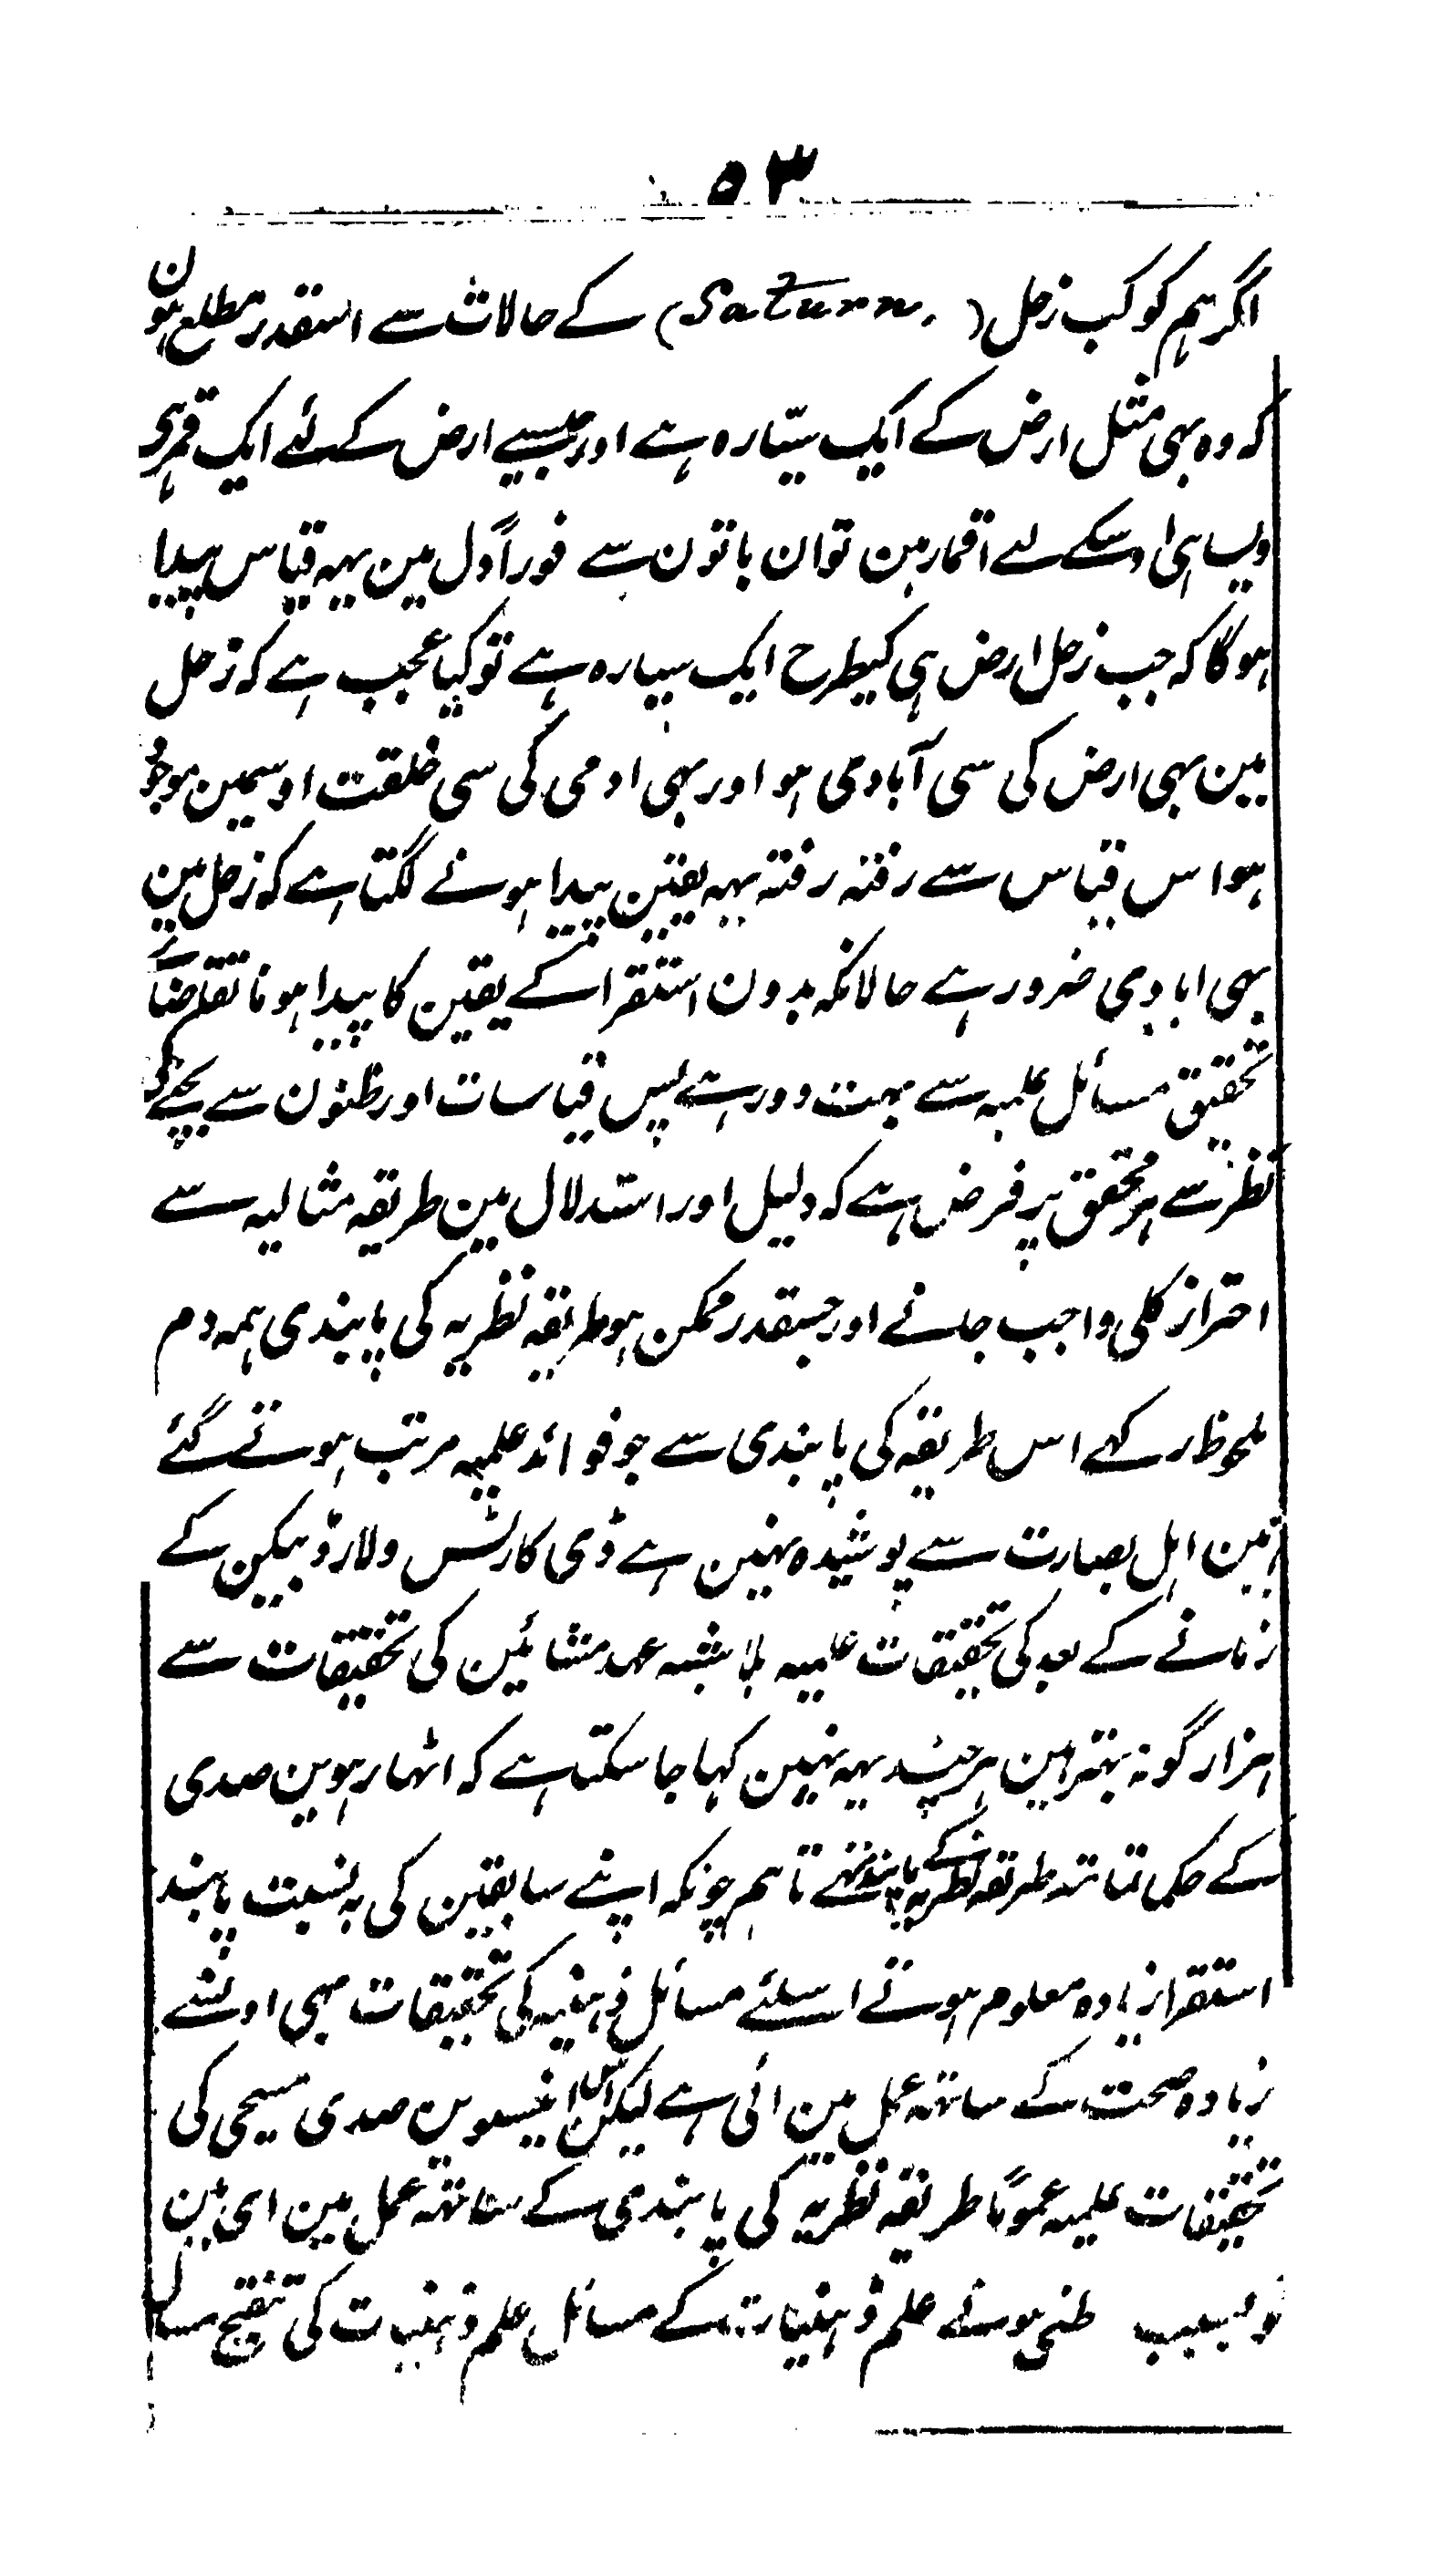 ۵۳
اگر ہم کوکب زحل (Saturn.) کے حالات سے اسقدر مطلع ہون
کہ وہ بہی مثل ارض کے ایک سیّارہ ہے اور جیسے ارض کے لئے ایک قمر ہی
ویسا ہی اوسکے لئے اقمار ہین تو ان باتون سے فوراً دل مین یہہ قیاس پیدا
ہوگا کہ جب زحل ارض ہی کیطرح ایک سیارہ ہے تو کیا عجب ہے کہ زحل
مین بہی ارض کی سی آبادی ہو اور بہی ادمی کی سی خلقت اوسمین موجود
ہو اس قیاس سے رفتہ رفتہ یہہ یقین پیدا ہونے لگتا ہے کہ زحل مین
بہی ابادی ضرور ہے حالانکہ بدون استقرا کے یقین کا پیدا ہونا تقاضائے
تحقیق مسائل علمیہ سے بہت دور ہے پس قیاسات اور ظنون سے بچنے کی
نظر سے ہر محقق پر فرض ہے کہ دلیل اور استدلال مین طریقہ مثالیہ سے
احتراز کلی واجب جانے اور جسقدر ممکن ہو طریقہ نظریہ کی پابندی ہمہ دم
ملحوظ رکہے اس طریقہ کی پابندی سے جو فوائد علمیہ مرتب ہوتے گئے
ہین اہل بصارت سے پوشیدہ نہین ہے ڈی کارٹس ولارڈ بیکن کے
زمانے کے بعد کی تحقیقات علمیہ بلا شبہ عہد مشائین کی تحقیقات سے
ہزار گونہ بہتر ہین ہر چند یہہ نہین کہا جا سکتا ہے کہ اٹہارہوین صدی
کے حکما تمامتر طریقہ نظریہ کے پابند تہے تاہم چونکہ اپنے سابقین کی بہ نسبت پابند
استقرا زیادہ معلوم ہوتے اسلئے مسائل ذہنیہ کی تحقیقات بہی اونسے
زیادہ صحت کے ساتہہ عمل مین ائی ہے لیکن اس انیسوین صدی مسیحی کی
تحقیقات علمیہ عموماً طریقہ نظریہ کی پابندی کے ساتہہ عمل مین ائی ہین
تو بسبب ظنی ہونے علم ذہنیات کے مسائل علم ذہنیات کی تنقیح مسائل